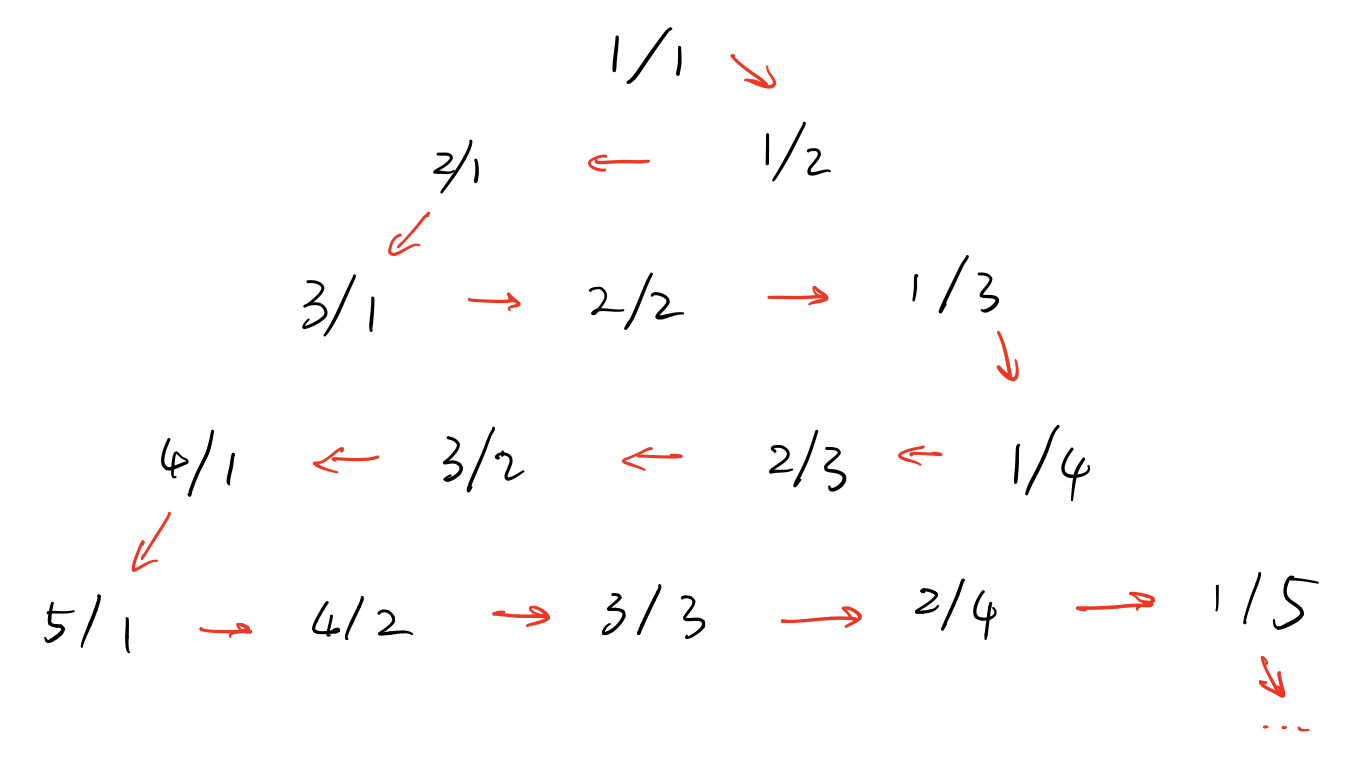 1/1
2/1 1/2
3/1 2/2 1/3
4/1 3/2 2/3 1/4
5/1 4/2 3/3 2/4 1/5
...